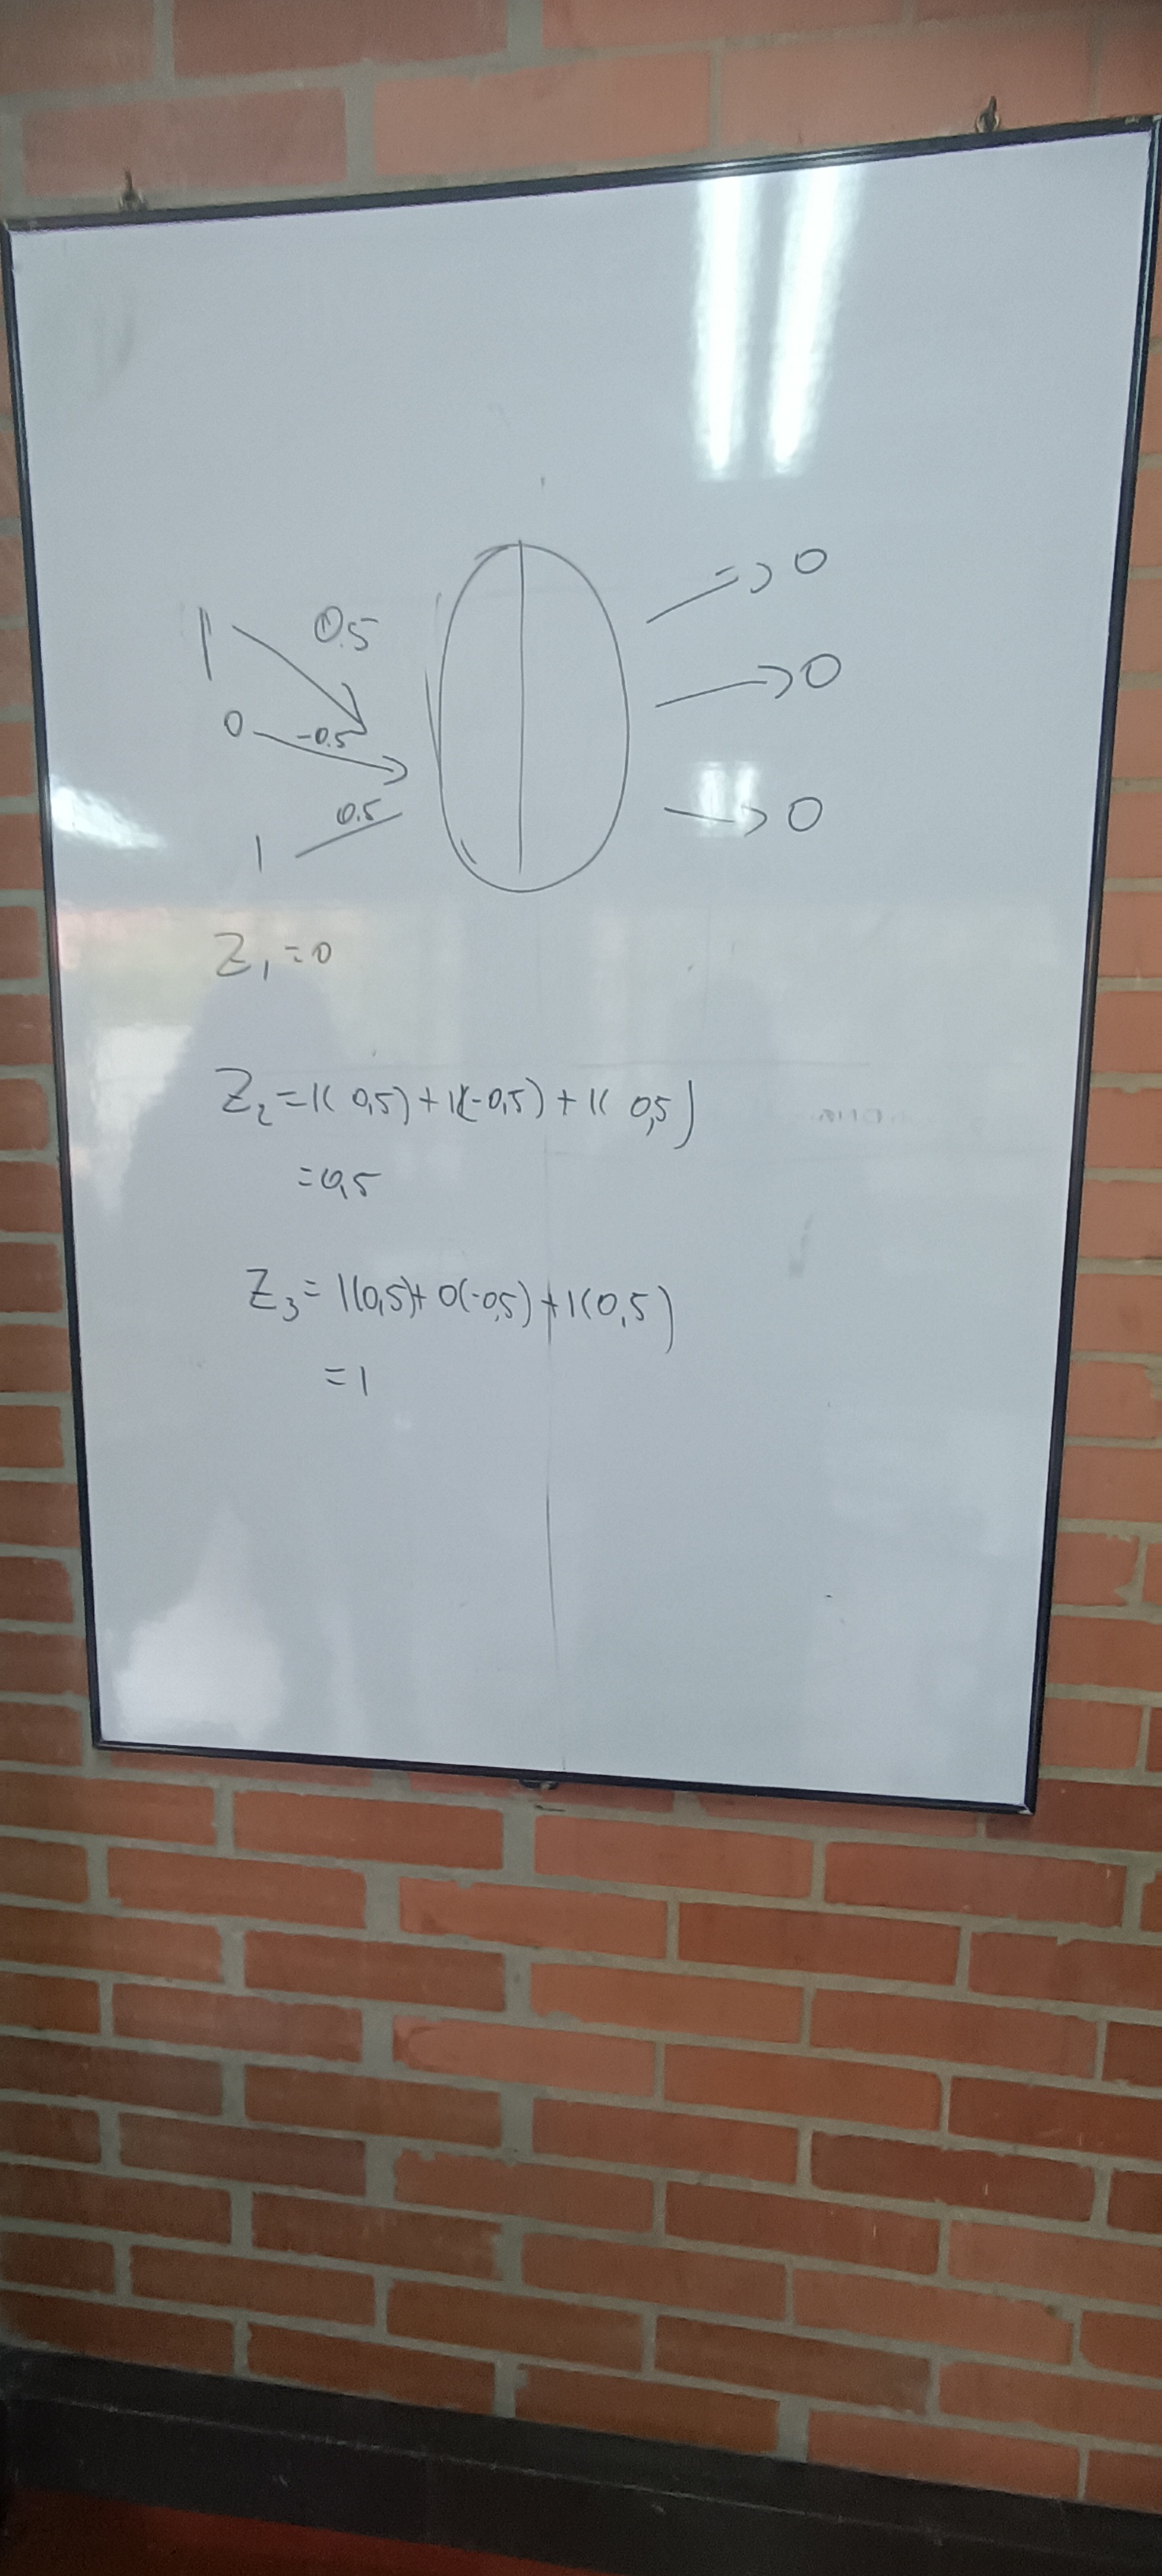 1 0.5 => 0
0 -0.5 -> 0
1 0.5 -> 0
Z₁ = 0
Z₂ = 1( 0,5) + 1(-0,5) + 1( 0,5)
= 0,5
Z₃ = 1(0,5)+ 0(-0,5) + 1(0,5)
= 1